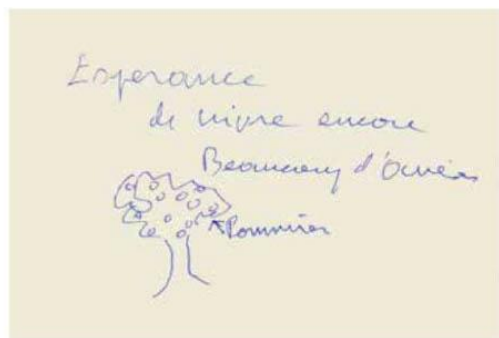 Esperance
de vivre encore
Beaucoup d'Années
Pommier